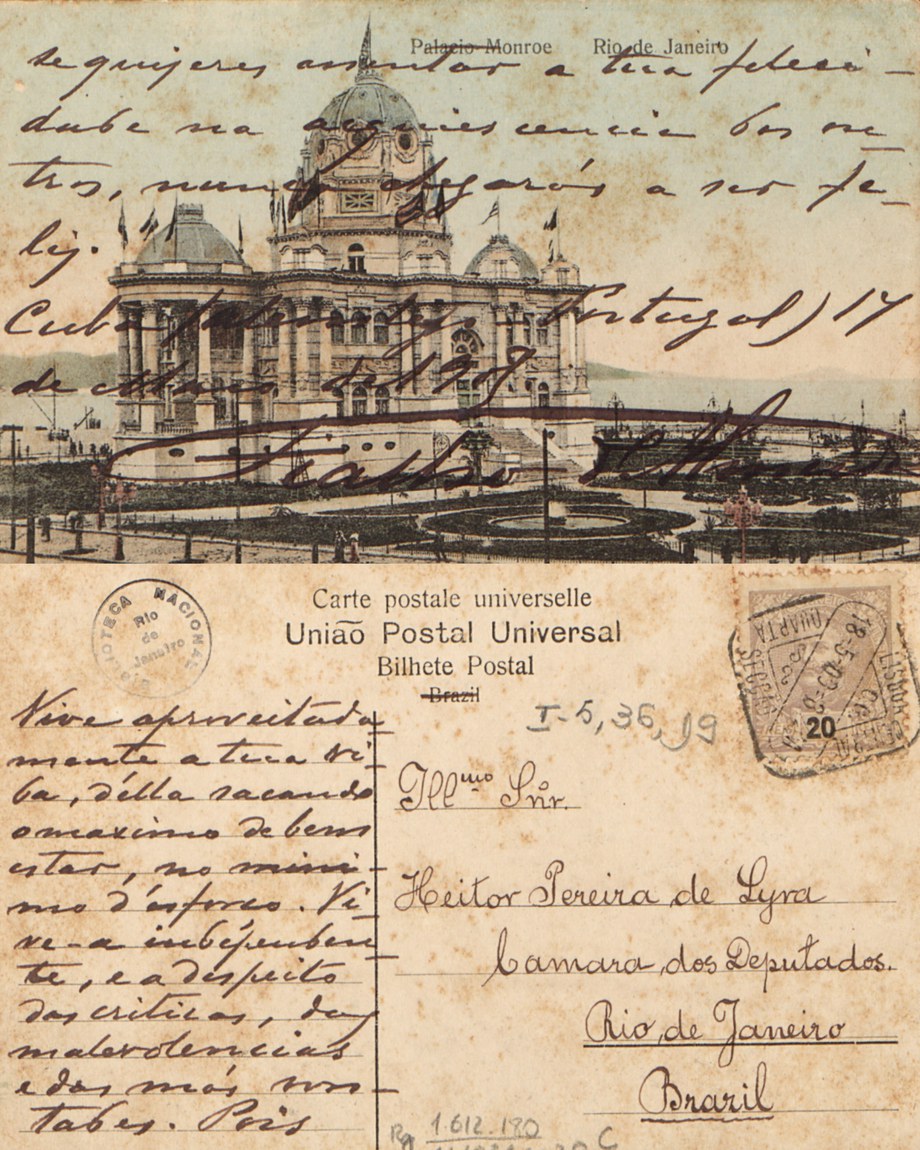 Palacio Monroe Rio de Janeiro
se quizeres assentar a tua felici-
dade na acquiescencia dos ou-
tros, nunca chegarás a ser fe-
liz.
Cuba Portugal) 17
de Maio de 1909
BIBLIOTECA NACIONAL
Rio
de
Janeiro
Carte postale universelle
União Postal Universal
Bilhete Postal
Brazil
I-5,36,99
20
QUARTA
SECÇÃO
LISBOA CENTRAL
18-5-09
Vive aproveitada
mente a tua vi-
da, d'élla sacando
o maximo de bem
estar, no mini-
mo d'esforço. Vi-
ve-a indépenden
te, e a despeito
das criticas, das
malevolencias
e das más von-
tades. Pois
Illmo Snr.
Heitor Pereira de Lyra
Camara dos Deputados.
Rio de Janeiro
Brazil
Rg 1.612.190
C